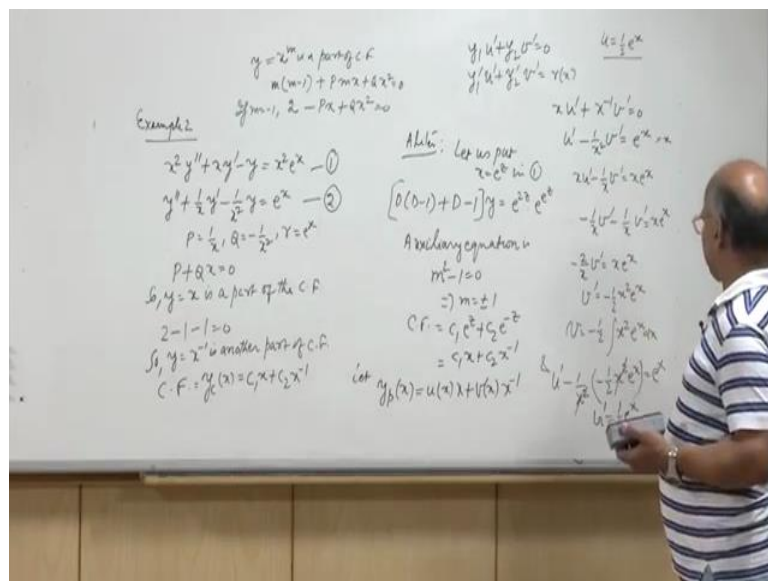 y = x^m is a part of C.F.
m(m-1) + Pmx + Qx² = 0
m=-1, 2 - Px + Qx² = 0
Example 2
x²y'' + xy' - y = x²e^x — ①
y'' + 1/x y' - 1/x² y = e^x — ②
P = 1/x, Q = -1/x², r = e^x
P + Qx = 0
So, y = x is a part of the C.F.
2 - 1 - 1 = 0
So, y = x^-1 is another part of C.F.
C.F. = y_c(x) = c₁x + c₂x^-1
y₁u' + y₂v' = 0
y₁'u' + y₂'v' = r(x)
Let us put
x = e^z in ①
[D(D-1) + D - 1] y = e^2z . e^e^z
Auxiliary equation is
m² - 1 = 0
⇒ m = ±1
C.F. = c₁e^z + c₂e^-z
= c₁x + c₂x^-1
Let y_p(x) = u(x)x + v(x)x^-1
u = 1/2 e^x
xu' + x^-1 v' = 0
u' - 1/x² v' = e^x
xu' - 1/x v' = xe^x
-1/x v' - 1/x v' = xe^x
-2/x v' = xe^x
v' = -1/2 x²e^x
v = -1/2 ∫ x²e^x dx
& u' - 1/x² (-1/2 x²e^x) = e^x
u' = 1/2 e^x